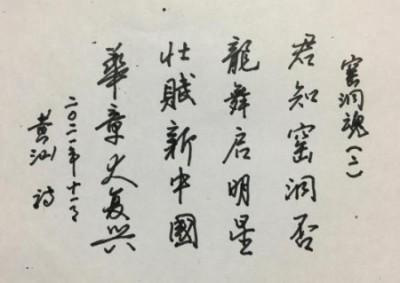 窑洞魂(二)
君知窑洞否
龍舞启明星
壮賦新中國
華章又复兴
二〇二一年十一月
黄汕詩